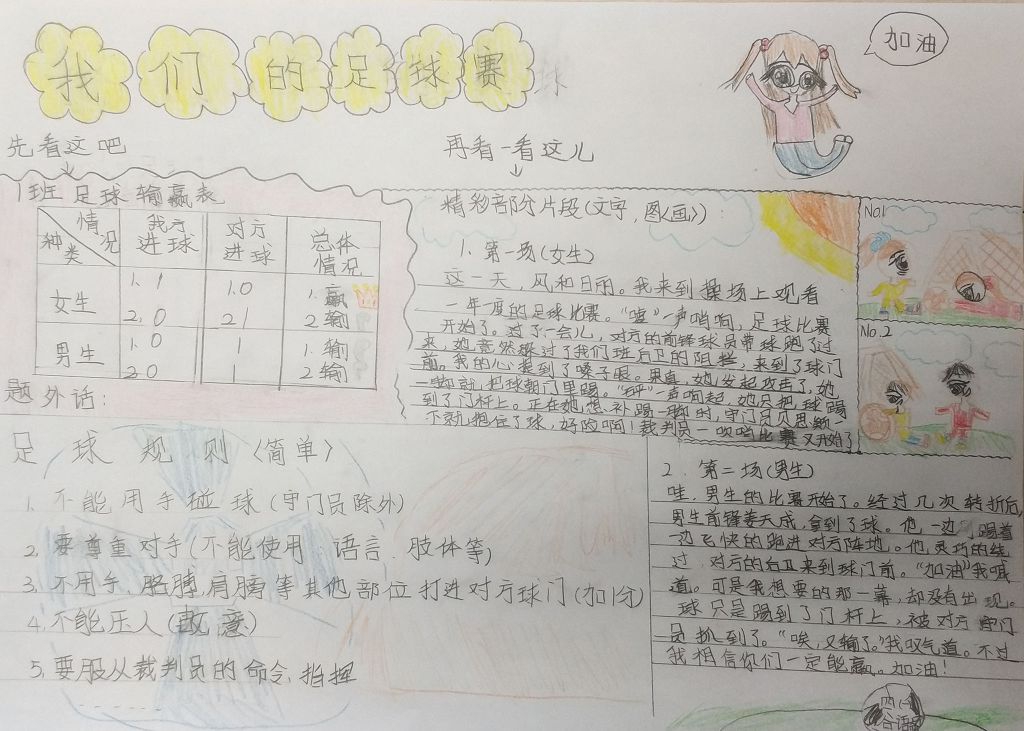 我们的足球赛
加油
先看这吧
再看一看这儿
1班足球输赢表
情况
种类
我方进球
对方进球
总体情况
女生
1. 1
1. 0
1. 赢
2. 0
2. 1
2. 输
男生
1. 0
1
1. 输
2. 0
1
2. 输
题外话:
精彩部分片段(文字,图画):
1. 第一场(女生)
这一天,风和日丽。我来到操场上观看
一年度的足球比赛。“嘘”一声哨响,足球比赛
开始了。过了一会儿,对方的前锋球员带球跑了过
来,她竟然躲过了我们班后卫的阻拦,来到了球门
前。我的心提到了嗓子眼。果真,她发起攻击了,她
一脚就把球朝门里踢。“砰”一声响起,她只把球踢
到了门杆上。正在她想补踢一脚时,守门员贝思颖一
下就抱住了球,好险啊!裁判员一吹哨比赛又开始了
No.1
No.2
足球规则〈简单〉
1. 不能用手碰球(守门员除外)
2. 要尊重对手(不能使用:语言、肢体等)
3. 不用手、胳膊,肩膀等其他部位打进对方球门(加1分)
4. 不能压人(故意)
5. 要服从裁判员的命令,指挥
2. 第二场(男生)
哇,男生的比赛开始了。经过几次转折后,
男生前锋姜天成,拿到了球。他一边踢着
一边飞快的跑进对方阵地。他灵巧的绕
过,对方的后卫来到球门前。“加油”我喊
道。可是我想要的那一幕,却没有出现。
球只是踢到了门杆上,被对方守门
员扒到了。“唉,又输了。”我叹气道。不过
我相信你们一定能赢。加油!
四(一)